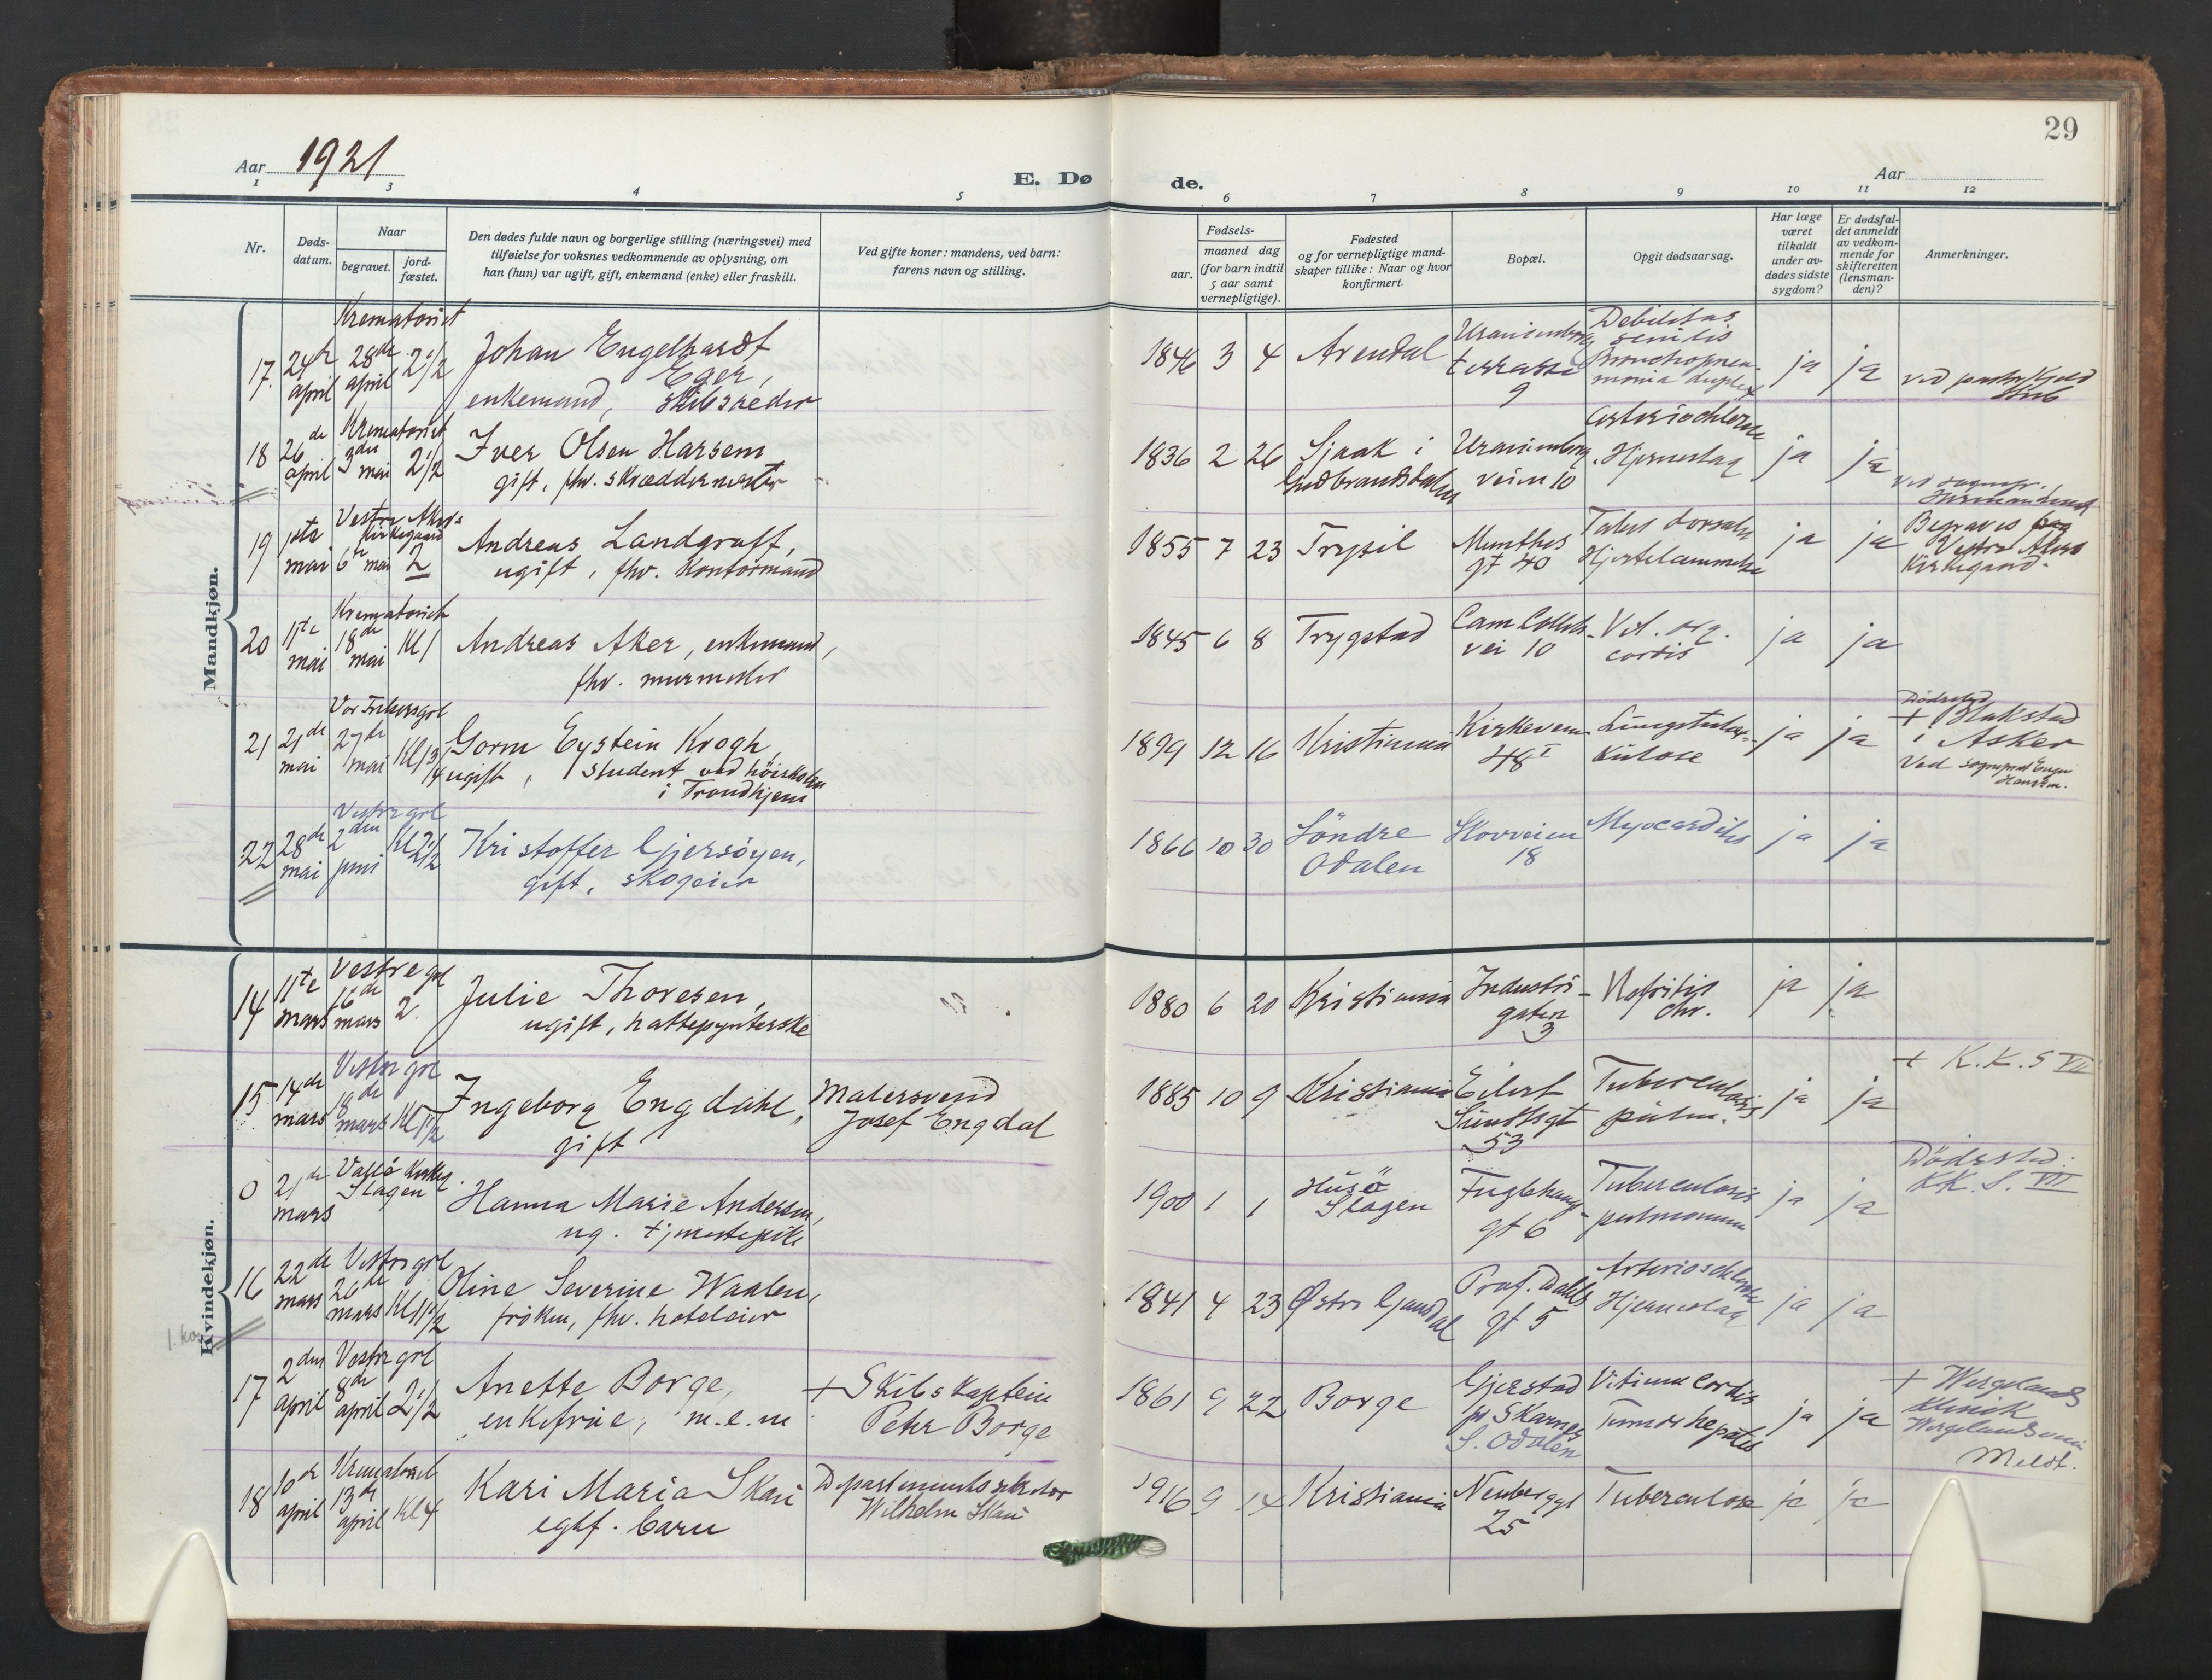 29
Aar 1921
E. Døde.
Aar
1 3 4 5 6 7 8 9 10 11 12
Nr.
Døds-
datum.
Naar
begravet.
jord-
fæstet.
Den dødes fulde navn og borgerlige stilling (næringsvei) med
tilføielse for voksnes vedkommende av oplysning, om
han (hun) var ugift, gift, enkemand (enke) eller fraskilt.
Ved gifte koner: mandens, ved barn:
farens navn og stilling.
Fødsels-
aar.
maaned dag
(for barn indtil
5 aar samt
vernepligtige).
Fødested
og for vernepligtige mand-
skaper tillike: Naar og hvor
konfirmert.
Bopæl.
Opgit dødsaarsag.
Har læge
været
tilkaldt
under av-
dødes sidste
sygdom?
Er dødsfal-
det anmeldt
av vedkom-
mende for
skifteretten
(lensman-
den)?
Anmerkninger.
Mandkjøn.
17. 24de april
Krematoriet
28de april 2 1/2
Johan Engelhardt
Eger,
enkemand, skibsreder
1846 3 4 Arendal
Uranienborg
terrasse
9
Debilitas
senilis
Bronchopneu-
monia duplex
ja ja
ved pastor Kjeld
Stub
18 26de april
Krematoriet
3die mai 2 1/2
Iver Olsen Harsem
gift, fhv. skræddermester
1836 2 26 Sjaak i
Gudbrandsdalen
Uranienborg
veien 10
Arteriosclerose
Hjerneslag
ja ja
19 1ste mai
Vestre Akers
kirkegaard
6te mai 2
Andreas Landgraff,
ugift, fhv. Kontormand
1855 7 23 Trysil
Munthes
gt 40
Tabes dorsalis
Hjertelammelse
ja ja
Begraves paa
Vestre Akers
Kirkegaard.
20 11te mai
Krematoriet
18de mai Kl 1
Andreas Aker, enkemand,
fhv. murmester
1845 6 8 Trygstad
Cam Colletts
vei 10
Vit. org.
cordis
ja ja
21 21de mai
Vor Frelsersgrl
27de mai Kl 1 3/4
Gorm Eystein Krogh,
ugift, student ved høiskolen
i Trondhjem
1899 12 16 Kristiania
Kirkeveien
48 I
Lungetuber-
kulose
ja ja
Dødssted
+ Blakstad
i Asker
Ved sogneprest Engen
Hansen.
22 28de mai
Vestre grl
2den juni Kl 2 1/2
Kristoffer Gjersøyen,
gift, skogeier
1866 10 30 Söndre
Odalen
Skovveien
18
Myocarditis
ja ja
Kvindekjøn.
14 11te mars
Vestre grl
16de mars 2
Julie Thoresen,
ugift, hattepynterske
1880 6 20 Kristiania
Industri-
gaten
3
Nefritis
chr.
ja ja
15 14de mars
Vestre grl
18de mars Kl 1 1/2
Ingeborg Engdahl,
gift
Malersvend
Josef Engdal
1885 10 9 Kristiania
Eilert
Sundtsgt
53
Tuberculosis
pulm.
ja ja
+ K.K.S VII
0 21de mars
Vallø Kirkeg.
Slagen
Hanna Marie Andersen,
ug. tjenestepike
1900 1 1
Husö
Slagen
Fuglehaug-
gt 6
Tuberculosis
pulmonum
ja ja
Dödssted:
K.K.S. VII
16 22de mars
Vestre grl
26de mars Kl 11 1/2
Oline Severine Waalen,
frøken, fhv. hoteleier
1841 4 23 Østre Gausdal
Prof. Dahls
gt 5
Arteriosclerose
Hjerneslag
ja ja
1. kor
17 2den april
Vestre grl
8de april 2 1/2
Anette Borge,
enkefrue, m.e.m
+ Skibskaptein
Peter Borge
1861 9 22 Borge
Gjerstad
pr Skarnes
S. Odalen
Vitium Cordis
Tumor hepatis
ja ja
+ Wergelands
klinik
Wergelandsveien
Meldt.
18 10de april
Krematoriet
13de april Kl 4
Kari Maria Skau
egtf. barn
Departementssekretær
Wilhelm Skau
1916 9 14 Kristiania
Neuberggt
25
Tuberculose
ja ja